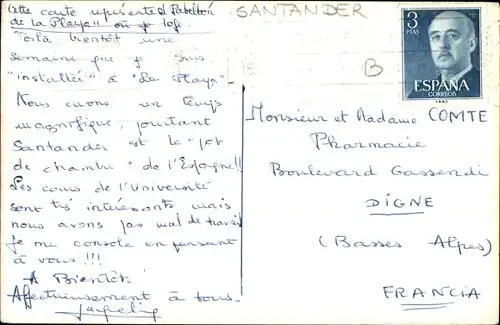 Cette carte représente el Pabellón
de la Playa" où je loge
Voilà bientôt une
semaine que je suis
"installée" à "La Playa"-
Nous avons un temps
magnifique, pourtant
Santander est le "pot
de chambre" de l'Espagne!!
Les cours de l'Université
sont très intéressants mais
nous avons pas mal de travail
Je me console en pensant
à vous !!!
A Bientôt.
Affectueusement à tous-
Jacqueline
SANTANDER
B
3
PTAS
ESPAÑA
CORREOS
Monsieur et Madame COMTE
Pharmacie
Boulevard Gassendi
DIGNE
(Basses Alpes)
FRANCIA